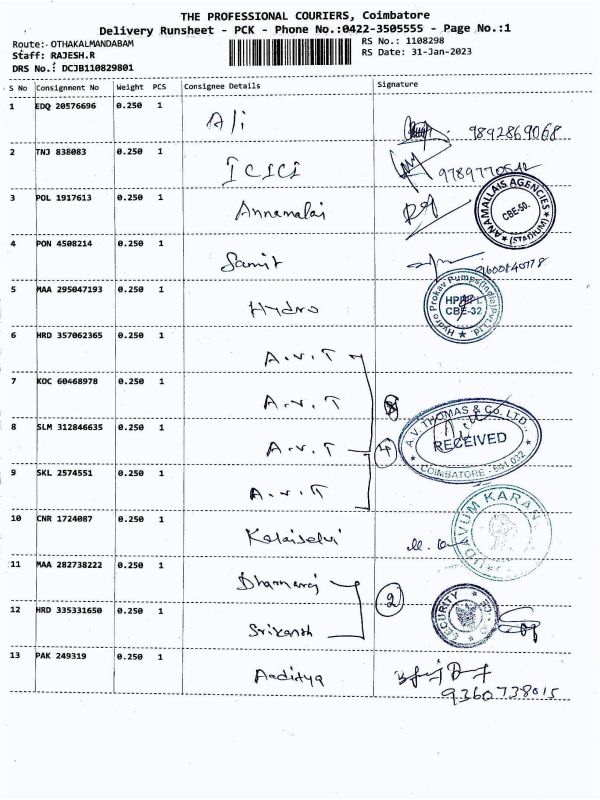 THE PROFESSIONAL COURIERS, Coimbatore
Delivery Runsheet - PCK - Phone No.:0422-3505555 - Page No.:1
Route:- OTHAKALMANDABAM
RS No.: 1108298
Staff: RAJESH.R
RS Date: 31-Jan-2023
DRS No.: DCJB110829801
S No Consignment No Weight PCS Consignee Details Signature
1 EDQ 20576696 0.250 1 Ali 9892869068
2 TNJ 838083 0.250 1 ICICI
3 POL 1917613 0.250 1 Annamalai
ANAMALLAIS AGENCIES
CBE-50.
(STADIUM)
4 PON 4508214 0.250 1 Samit
5 MAA 295047193 0.250 1 Hydro
Hydro Prokav Pumps(India)Pvt.Ltd
CBE-32
6 HRD 357062365 0.250 1 A.V.T
7 KOC 60468978 0.250 1 A.V.T
8 SLM 312846635 0.250 1 A.V.T 4
A.V. THOMAS & Co. LTD.,
RECEIVED
COIMBATORE - 641 032
9 SKL 2574551 0.250 1 A.V.T
10 CNR 1724087 0.250 1 Kalaiselvi
UDAVUM KARAN
11 MAA 282738222 0.250 1 Dhamaraj 2
12 HRD 335331650 0.250 1 Srikanth
SECURITY
13 PAK 249319 0.250 1 Aaditya
9360738015